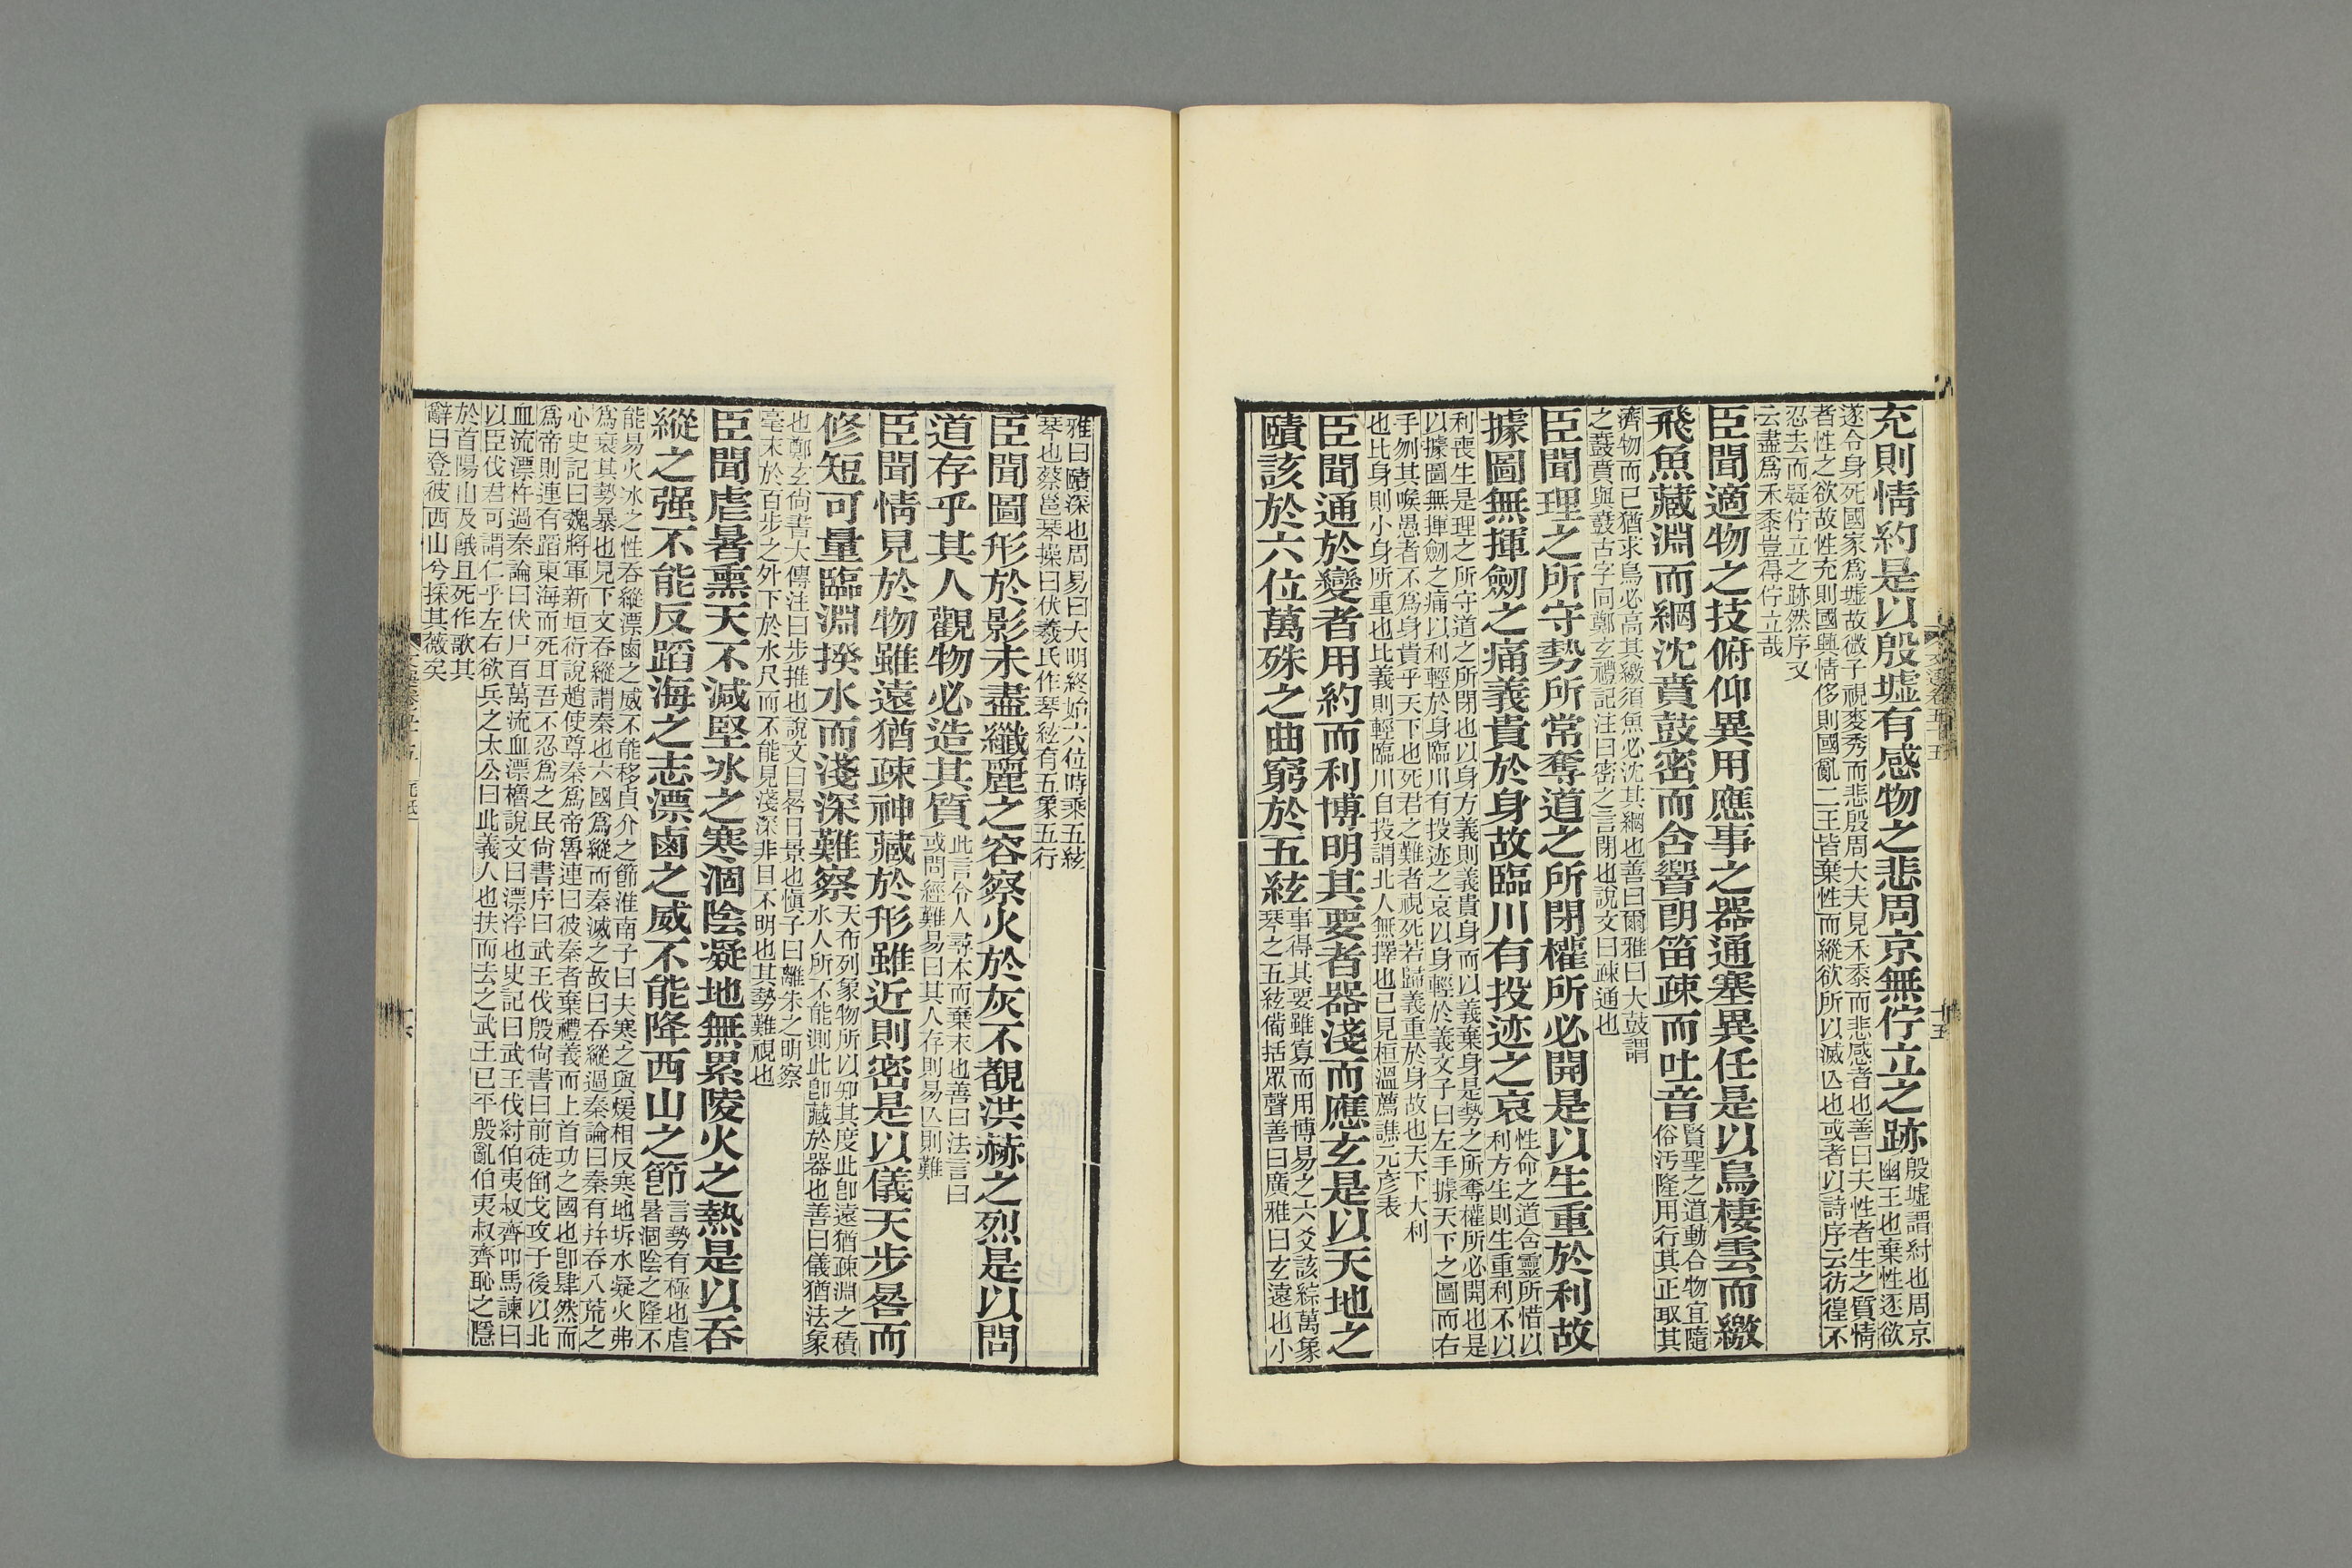 充則情約是以殷墟有感物之悲周京無佇立之跡
殷墟謂紂也周京
幽王也棄性逐欲
遂令身死國家爲墟故微子視麥秀而悲殷周大夫見禾黍而悲感者也善曰夫性者生之質情
者性之欲故性充則國興情侈則國亂二王皆棄性而縱欲所以滅亾也或者以詩序云彷徨不
忍去而疑佇立之跡然序又
云盡爲禾黍豈得佇立哉
臣聞適物之技俯仰異用應事之器通塞異任是以鳥棲雲而繳
飛魚藏淵而網沈賁鼓密而含響朗笛疎而吐音
賢聖之道動合物宜隨
俗汚隆用行其正取其
濟物而已猶求鳥必高其繳須魚必沈其網也善曰爾雅曰大鼓謂
之鼖賁與鼖古字同鄭玄禮記注曰密之言閉也說文曰疎通也
臣聞理之所守勢所常奪道之所閉權所必開是以生重於利故
據圖無揮劒之痛義貴於身故臨川有投迹之哀
性命之道含靈所惜以
利方生則生重利不以
利喪生是理之所守道之所閉也以身方義則義貴身而以義棄身是勢之所奪權所必開也是
以據圖無揮劒之痛以利輕於身臨川有投迹之哀以身輕於義文子曰左手據天下之圖而右
手刎其喉愚者不爲身貴乎天下也死君之難者視死若歸義重於身故也天下大利
也比身則小身所重也比義則輕臨川自投謂北人無擇也已見桓溫薦譙元彥表
臣聞通於變者用約而利博明其要者器淺而應玄是以天地之
賾該於六位萬殊之曲窮於五絃
事得其要雖寡而用博易之六爻該綜萬象
琴之五絃備括眾聲善曰廣雅曰玄遠也小
雅曰賾深也周易曰大明終始六位時乘五絃
琴也蔡邕琴操曰伏羲氏作琴絃有五象五行
臣聞圖形於影未盡纖麗之容察火於灰不覩洪赫之烈是以問
道存乎其人觀物必造其質
此言令人尋本而棄末也善曰法言曰
或問經難易曰其人存則易亾則難
臣聞情見於物雖遠猶疎神藏於形雖近則密是以儀天步晷而
修短可量臨淵揆水而淺深難察
天布列象物所以知其度此卽遠猶疎淵之積
水人所不能測此卽藏於器也善曰儀猶法象
也鄭玄尙書大傳注曰步推也說文曰晷日景也愼子曰離朱之明察
毫末於百步之外下於水尺而不能見淺深非目不明也其勢難視也
臣聞虐暑熏天不減堅冰之寒涸陰凝地無累陵火之熱是以吞
縱之强不能反蹈海之志漂鹵之威不能降西山之節
言勢有極也虐
暑涸陰之隆不
能易火冰之性吞縱漂鹵之威不能移貞介之節淮南子曰夫寒之與煖相反寒地坼水凝火弗
爲衰其勢暴也見下文吞縱謂秦也六國爲縱而秦滅之故曰吞縱過秦論曰秦有幷吞八荒之
心史記曰魏將軍新垣衍說趙使尊秦爲帝魯連曰彼秦者棄禮義而上首功之國也卽肆然而
爲帝則連有蹈東海而死耳吾不忍爲之民尙書序曰武王伐殷尙書曰前徒倒戈攻于後以北
血流漂杵過秦論曰伏尸百萬流血漂櫓說文曰漂浮也史記曰武王伐紂伯夷叔齊叩馬諫曰
以臣伐君可謂仁乎左右欲兵之太公曰此義人也扶而去之武王已平殷亂伯夷叔齊恥之隱
於首陽山及餓且死作歌其
辭曰登彼西山兮採其薇矣